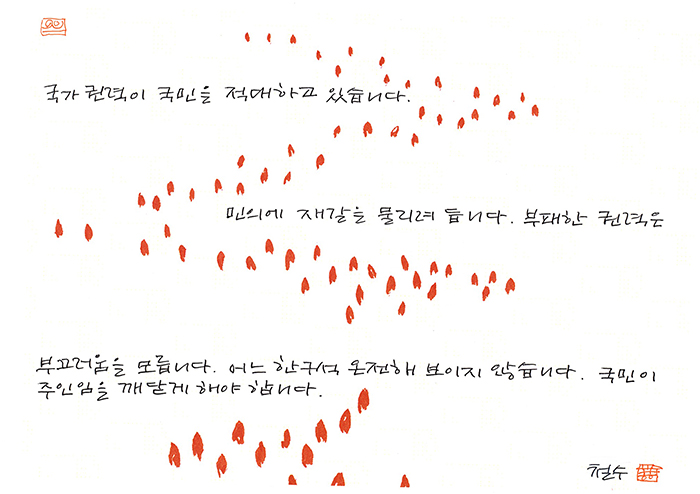 국가 권력이 국민을 적대하고 있습니다.
민의에 재갈을 물리려 듭니다. 부패한 권력은
부끄러움을 모릅니다. 어느 한구석 온전해 보이지 않습니다. 국민이
주인임을 깨닫게 해야 합니다.
철수